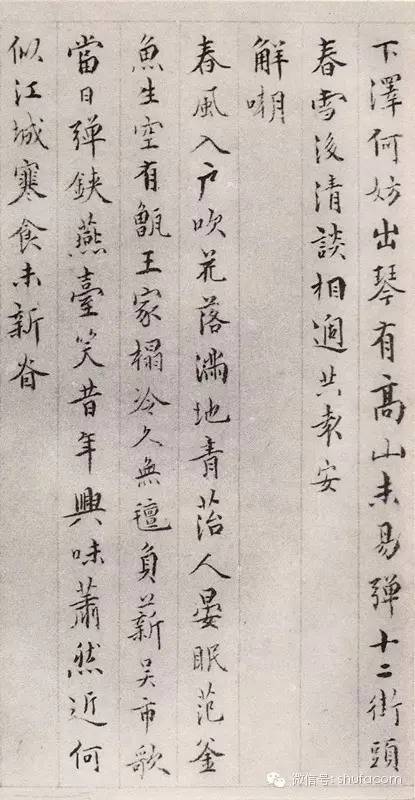 下澤何妨出琴有高山未易彈十二街頭
春雪後清談相過共袁安
解嘲
春風入户吹花落滿地青苔人晏眠范釜
魚生空有甑王家榻冷久無氊負薪吴市歌
當日彈鋏燕臺笑昔年興味蕭然近何
似江城寒食未新
微信号: shufacom